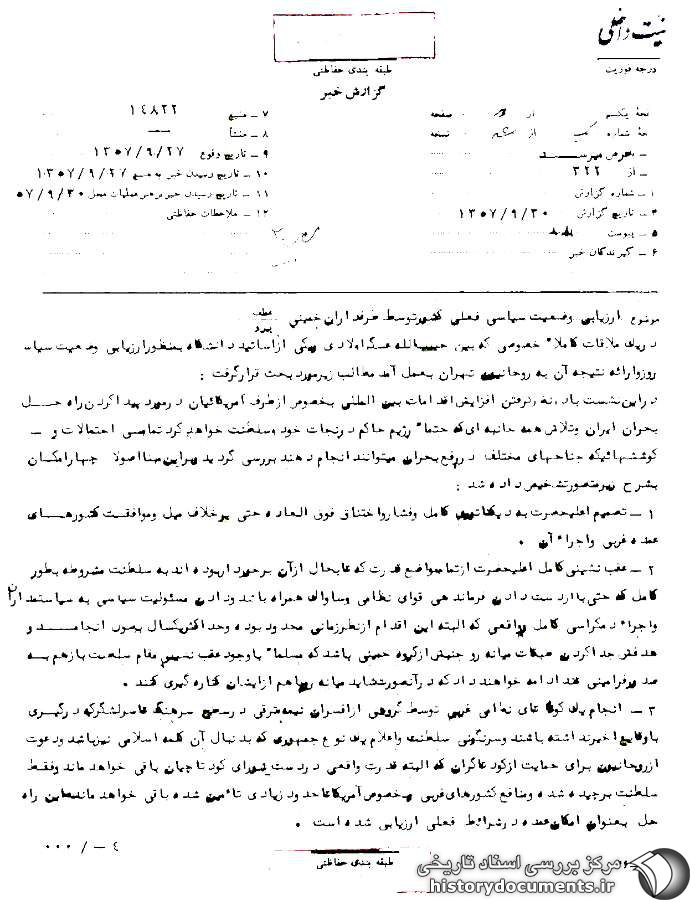 درجه فوریت
طبقه بندی حفاظتی
گزارش خبر
نسخه یکم از صفحه
نسخه شماره از نسخه
بعرض میرسد
از ۳۲۲
۱ ـ شماره گزارش
۴ ـ تاریخ گزارش ۱۳۵۷/۹/۳۰
۵ ـ پیوست
۶ ـ گیرندگان خبر
۷ ـ منبع ۱۴۸۲۲
۸ ـ منشأ
۹ ـ تاریخ وقوع ۱۳۵۷/۹/۲۷
۱۰ ـ تاریخ رسیدن خبر به منبع ۱۳۵۷/۹/۲۷
۱۱ ـ تاریخ رسیدن خبر برهبر عملیات محل ۵۷/۹/۳۰
۱۲ ـ ملاحظات حفاظتی
موضوع ارزیابی وضعیت سیاسی فعلی کشور توسط طرفداران خمینی عطف پیرو
در یک ملاقات کاملاً خصوصی که بین حبیب‌الله عسگراولادی و یکی از اساتید دانشگاه بمنظور ارزیابی وضعیت سیاسی
روز و ارائه نتیجه آن به روحانیون تهران بعمل آمد مطالب زیر مورد بحث قرار گرفت :
در این نشست با در نظر گرفتن افزایش اقدامات بین المللی بخصوص از طرف آمریکائیان در مورد پیدا کردن راه حل
بحران ایران و تلاش همه جانبه ای که حتماً رژیم حاکم در نجات خود و سلطنت خواهد کرد تمامی احتمالات و ـ
کوششهائیکه جناحهای مختلف در رفع بحران میتوانند انجام دهند بررسی گردید بر این مبنا اصولا چهار امکان
بشرح زیر متصور تشخیص داده شد :
۱ ـ تصمیم اعلیحضرت به دیکتاتوری کامل و فشار و اختناق فوق العاده حتی بر خلاف میل و موافقت کشورهای
عمده غربی و اجراء آن .
۲ ـ عقب نشینی کامل اعلیحضرت از تمام مواضع قدرت که تا بحال از آن برخوردار بوده اند به سلطنت مشروطه بطور
کامل که حتی با از دست دادن فرماندهی قوای نظامی و ساواک همراه باشد و دادن مسئولیت سیاسی به سیاستمداران
و اجراء دمکراسی کامل و واقعی که البته این اقدام از نظر زمانی محدود بوده و حداکثر یکسال بعد انجام و
هدفش جدا کردن طبقات میانه رو جنبش از گروه خمینی باشد که مسلماً با وجود عقب نشینی مقام سلطنت باز هم به
ضد و فرامینی خود ادامه خواهند داد که در آنصورت شاید میانه روها هم از ایشان کناره گیری کنند .
۳ ـ انجام یک کودتای نظامی غربی توسط گروهی از افسران نیمه مترقی در سطح سرهنگ تا سرلشگر که درگیری
با وقایع اخیر نداشته باشند و سرنگونی سلطنت و اعلام یک نوع جمهوری که بدنبال آن کلمه اسلامی نیز باشد و دعوت
از روحانیون برای حمایت از کودتاگران که البته قدرت واقعی در دست شورای کودتاچیان باقی خواهد ماند و فقط
سلطنت برچیده شده و منافع کشورهای غربی بخصوص آمریکا تا حدود زیادی تأمین شده باقی خواهد ماند این راه
حل بعنوان امکان عمده در شرائط فعلی ارزیابی شده است .
۴ ـ / ۰۰۰
طبقه بندی حفاظتی
مرکز بررسی اسناد تاریخی
historydocuments.ir